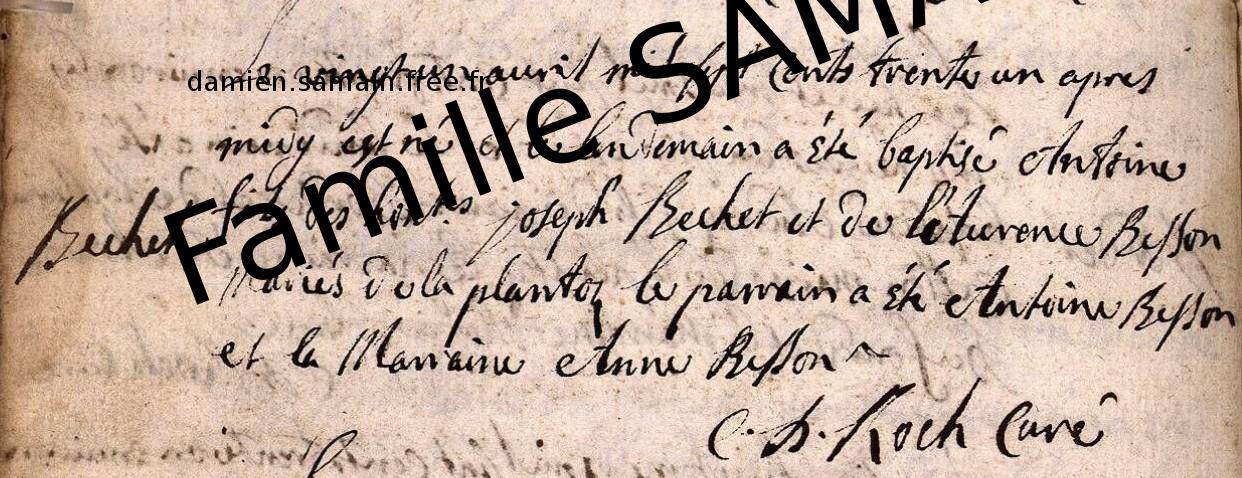 Famille SAMA
damien.samain.free.fr
vingt un avril mil sept cents trente un apres
midy est né et le landemain a été baptisé Antoine
Bechet fils des hon.s joseph Bechet et de Bessson
Mariés de la plantaz le parrain a été Antoine Besson
et la Marraine Anne Besson
C. D. Roch Curé